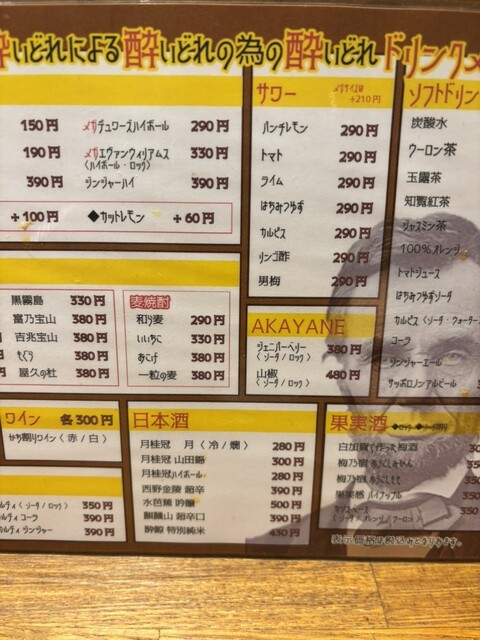 酔いどれによる酔いどれの為の酔いどれドリンクメ
150円 メガデュワーズハイボール 290円
190円 メガエヴァンウィリアムス 330円
(ハイボール・ロック)
390円 ジンジャーハイ 390円
+100円 ◆カットレモン +60円
サワー メガサイズは +210円
パンチレモン 290円
トマト 290円
ライム 290円
はちみつゆず 290円
カルピス 290円
リンゴ酢 290円
男梅 290円
ソフトドリン
炭酸水
ウーロン茶
玉露茶
知覧紅茶
ジャスミン茶
100%オレンジ
トマトジュース
はちみつゆずソーダ
カルピス(ソーダ・ウォーター
コーラ
ジンジャーエール
サッポロノンアルビール
黒霧島 330円
富乃宝山 380円
吉兆宝山 380円
もぐら 380円
屋久の杜 380円
麦焼酎
和ら麦 290円
いいちこ 330円
おこげ 380円
一粒の麦 380円
AKAYANE
ジュニパーベリー 380円
(ソーダ/ロック)
山椒 480円
(ソーダ/ロック)
ワイン 各300円
かち割りワイン(赤/白)
ルティ(ソーダ/ロック) 350円
カルティ コーラ 390円
カルティ ジンジャー 390円
日本酒
月桂冠 月(冷/燗) 280円
月桂冠 山田錦 300円
月桂冠ハイボール 280円
西野金陵 超辛 390円
水芭蕉 吟醸 500円
麒麟山 超辛口 390円
酔鯨 特別純米 430円
果実酒
白加賀で作った梅酒
梅乃宿
梅乃宿
果実感 パイナップル
カシスベース
表示価格は税込みとなります。